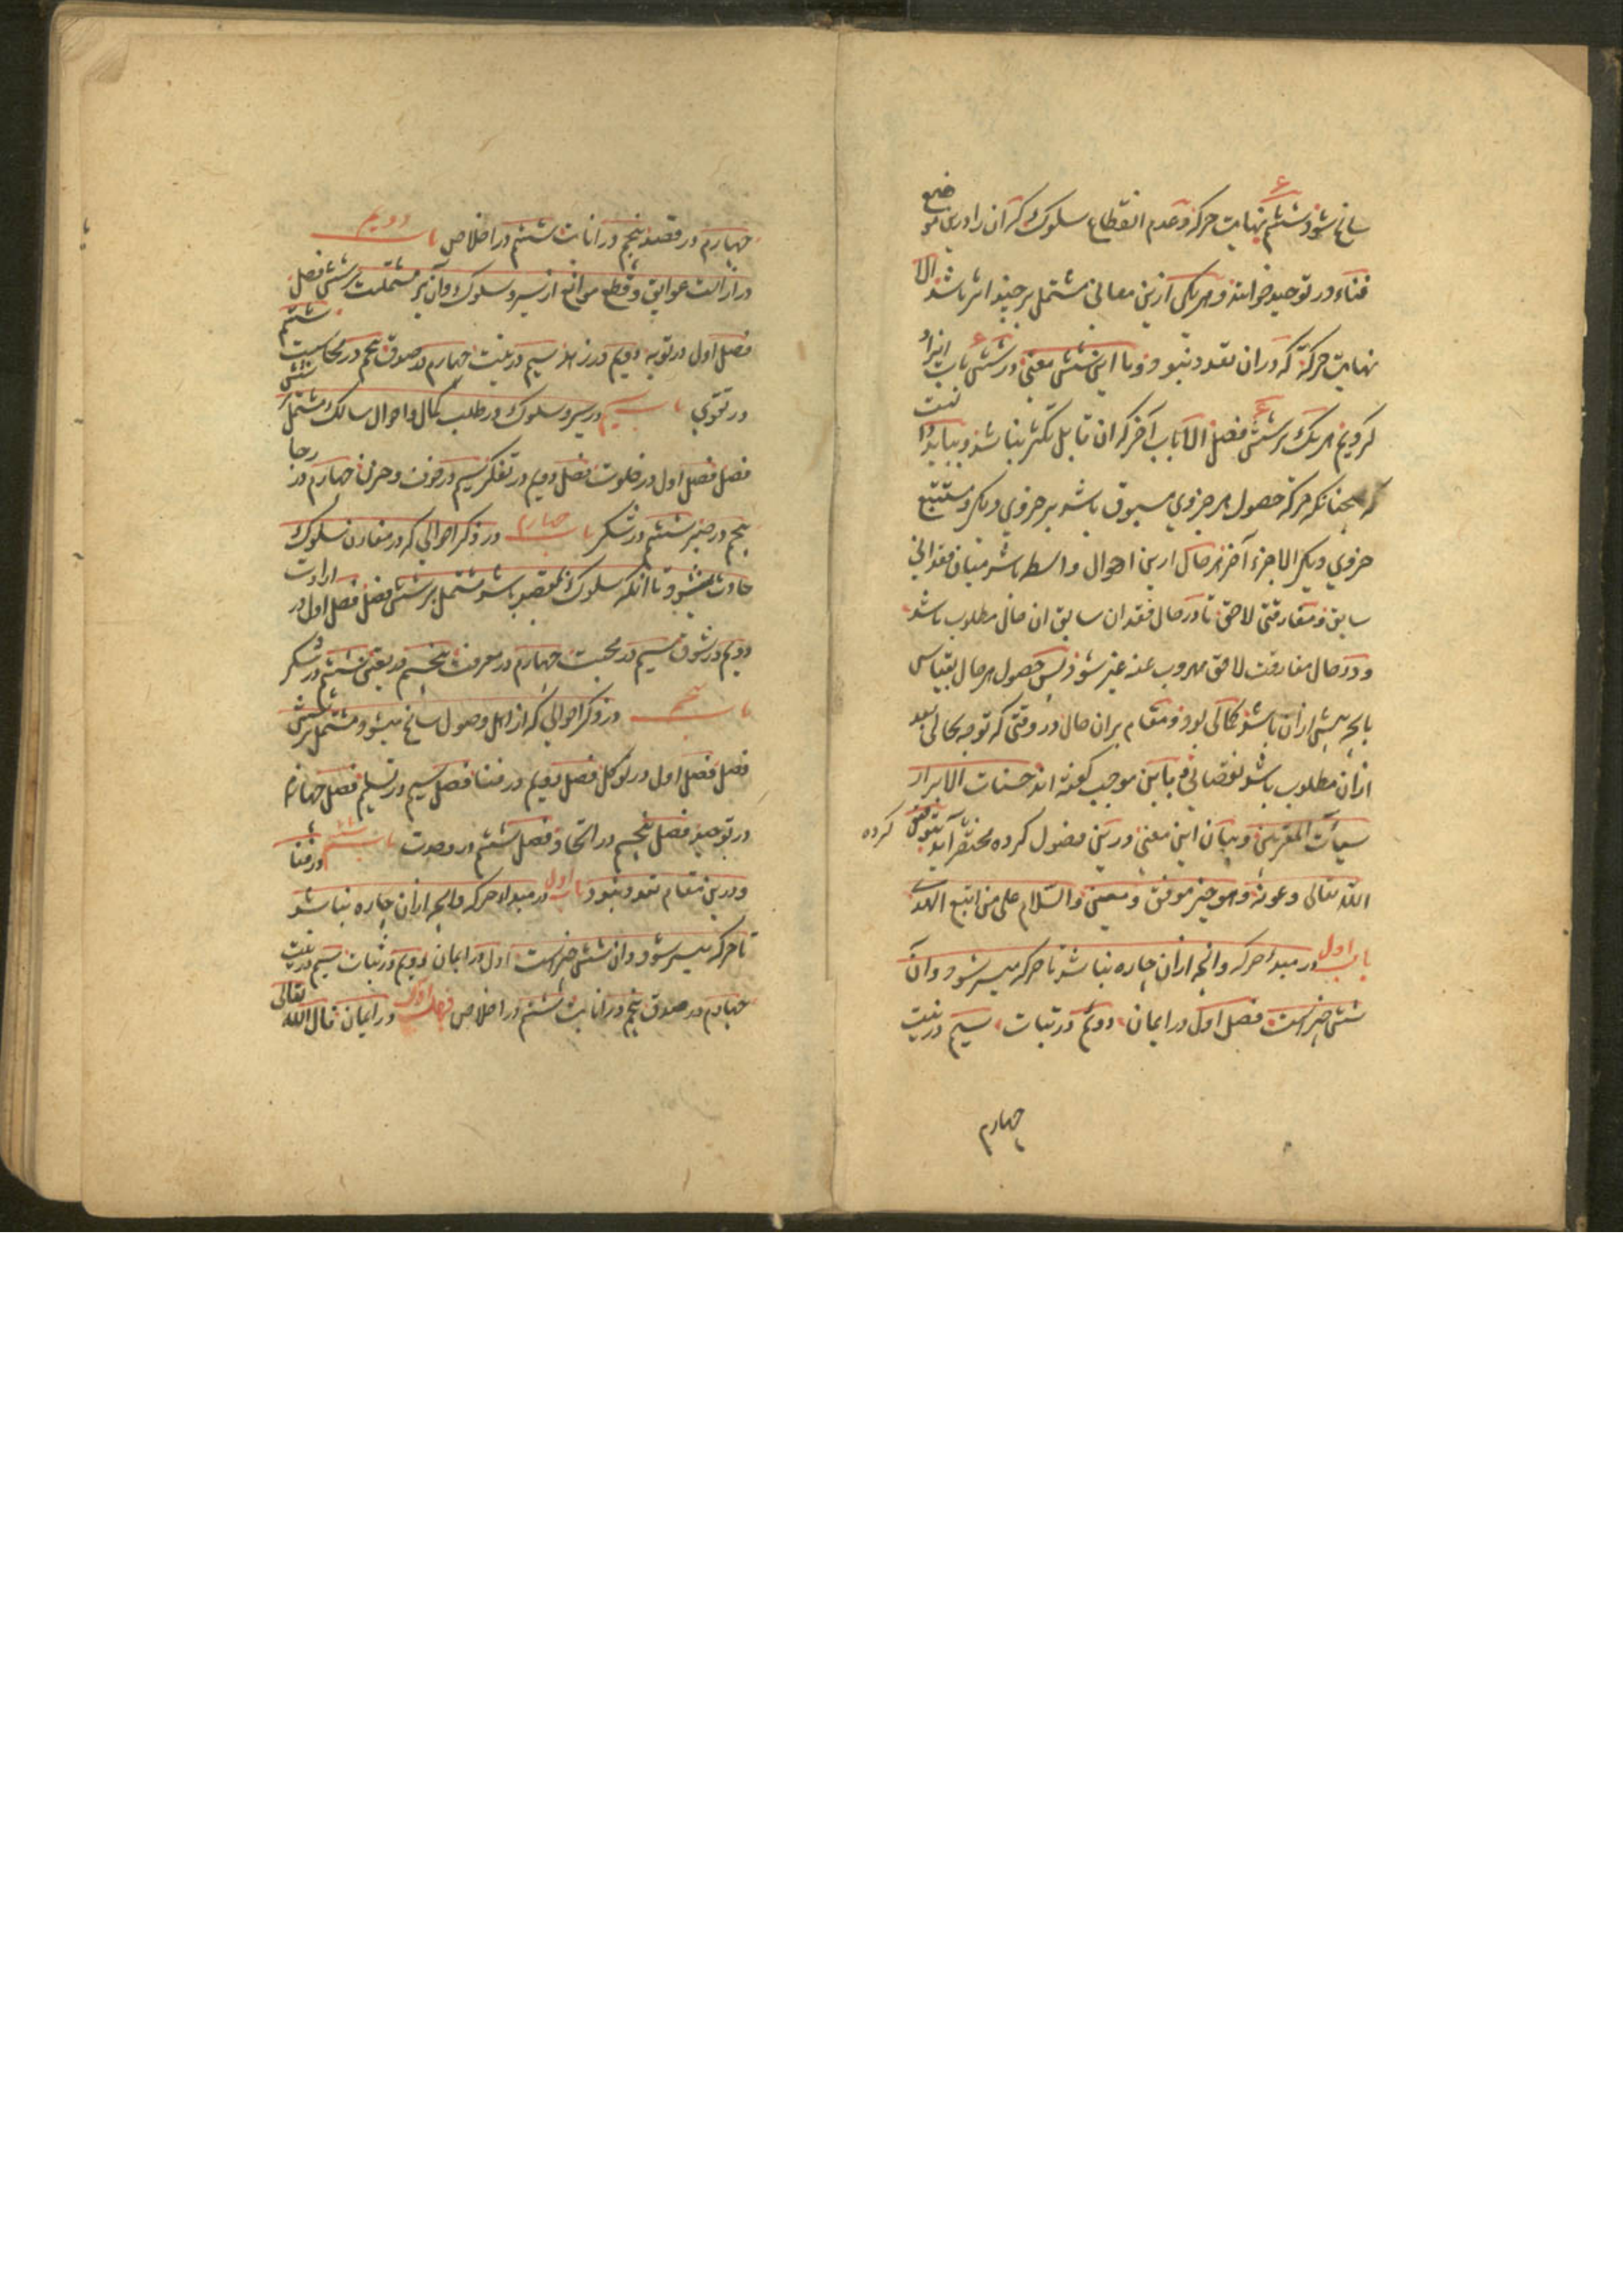 سانح شود ششم نهایت حرکة و عدم انقطاع سلوک که آن را درین موضع
فناء در توحید خوانند و هر یکی ازین معانی مشتمل بر چند امر باشد الا
نهایت حرکة که در ان تعدد نبود و ما این شش معنی در شش باب ایراد
کردیم هر یک بر شش فصل الا باب آخر که ان قابل تکثر نباشد و بباید دانست
که همچنانکه حرکة حصول هر جزوی مسبوق باشد بر جزوی دیگر و مستتبع
جزوی دیگر الا جزء آخر هر حال ازین احوال واسطه باشد میان فقدانی
سابق و مفارقتی لاحق تا در حال فقدان سابق ان حال مطلوب باشد
و در حال مفارقت لاحق مهروب عنه غیر شود پس حصول هر حال بقیاس
بانچه پیش ازان باشد کمالی بود و مقام بران حال در وقتی که توجه بحالی بعد
ازان مطلوب باشد نقصانی و باین موجب گفته اند حسنات الابرار
سیئات المقربین و بیان این معنی درین فصول کرده مختصر آید بتوفیق
کرده
الله تعالی و عونه و هو خیر موفق و معین و السلام علی من اتبع الهدی
باب اول در مبدا حرکه و انچه ازان چاره نباشد تا حرکه میسر شود و ان
شش چیز است فصل اول در ایمان دویم در ثبات سیم در نیت
چهارم
چهارم در قصد پنجم در انابت ششم در اخلاص باب دویم
در ازالت عوایق و قطع موانع از سیر و سلوک و آن نیز مشتملست بر شش فصل
فصل اول در توبه دویم در زهد سیم در نیت چهارم در صدق پنجم در محاسبت ششم
در تقوی باب سیم در سیر و سلوک و در طلب کمال و احوال سالک مشتمل بر شش
فصل فصل اول در خلوت فصل دویم در تفکر سیم در خوف و حزن چهارم در رجا
پنجم در صبر ششم در شکر باب چهارم در ذکر احوالی که در مقارن سلوک
حادث میشود تا انکه سلوک بمقصد باشد مشتمل بر شش فصل فصل اول در ارادت
دویم در شوق سیم در محبت چهارم در معرفت پنجم در یقین ششم در شکر
باب پنجم در ذکر احوالی که از اهل وصول سانح میشود مشتمل بر شش
فصل فصل اول در توکل فصل دویم در فنا فصل سیم در تسلیم فصل چهارم
در توحید فصل پنجم در اتحاد فصل ششم در وحدت باب ششم در فنا
و درین مقام تعدد نبود باب اول در مبداء حرکه و انچه ازان چاره نباشد
تا حرکه میسر شود و ان شش چیز است اول در ایمان دویم در ثبات سیم در نیت
چهارم در صدق پنجم در انابت ششم در اخلاص فصل اول در ایمان قال الله تعالی